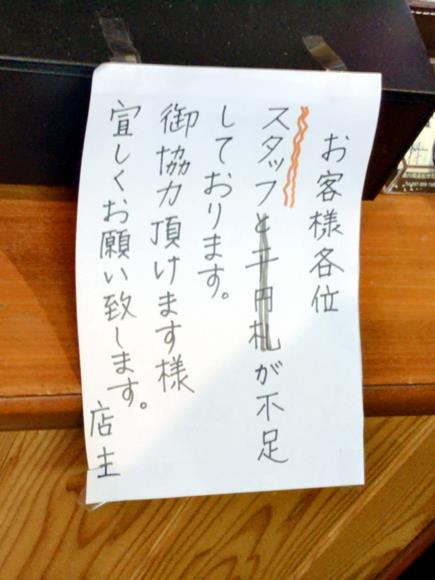 お客様各位
スタッフと千円札が不足
しております。
御協力頂けます様
宜しくお願い致します。
店主